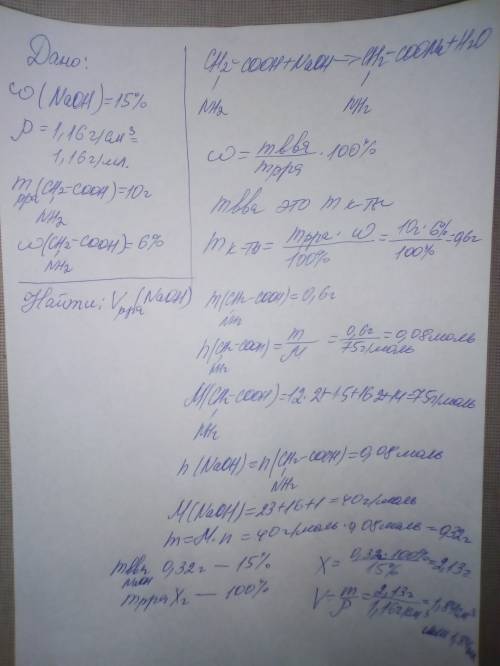 Дано:
ω(NaOH)=15%
ρ=1,16г/см³=
1,16г/мл.
m(CH₂-COOH)=10г
р-ра NH₂
ω(CH₂-COOH)=6%
NH₂
Найти: V р-ра(NaOH)
CH₂-COOH+NaOH→CH₂-COONa+H₂O
NH₂ NH₂
ω=mв-ва/mр-ра·100%
mв-ва это mк-ты
mк-ты=mр-ра·ω/100%=10г·6%/100%=0,6г
m(CH₂-COOH)=0,6г
NH₂
n(CH₂-COOH)=m/M=0,6г/75г/моль=0,08моль
NH₂
M(CH₂-COOH)=12·2+1·5+16·2+14=75г/моль
NH₂
n(NaOH)=n(CH₂-COOH)=0,08моль
NH₂
M(NaOH)=23+16+1=40г/моль
m=M·n=40г/моль·0,08моль=0,32г
mв-ва 0,32г — 15%
NaOH
mр-ра Xг — 100%
X=0,32·100%/15%=2,13г
V=m/ρ=2,13г/1,16г/см³=1,84см³
или 1,84мл